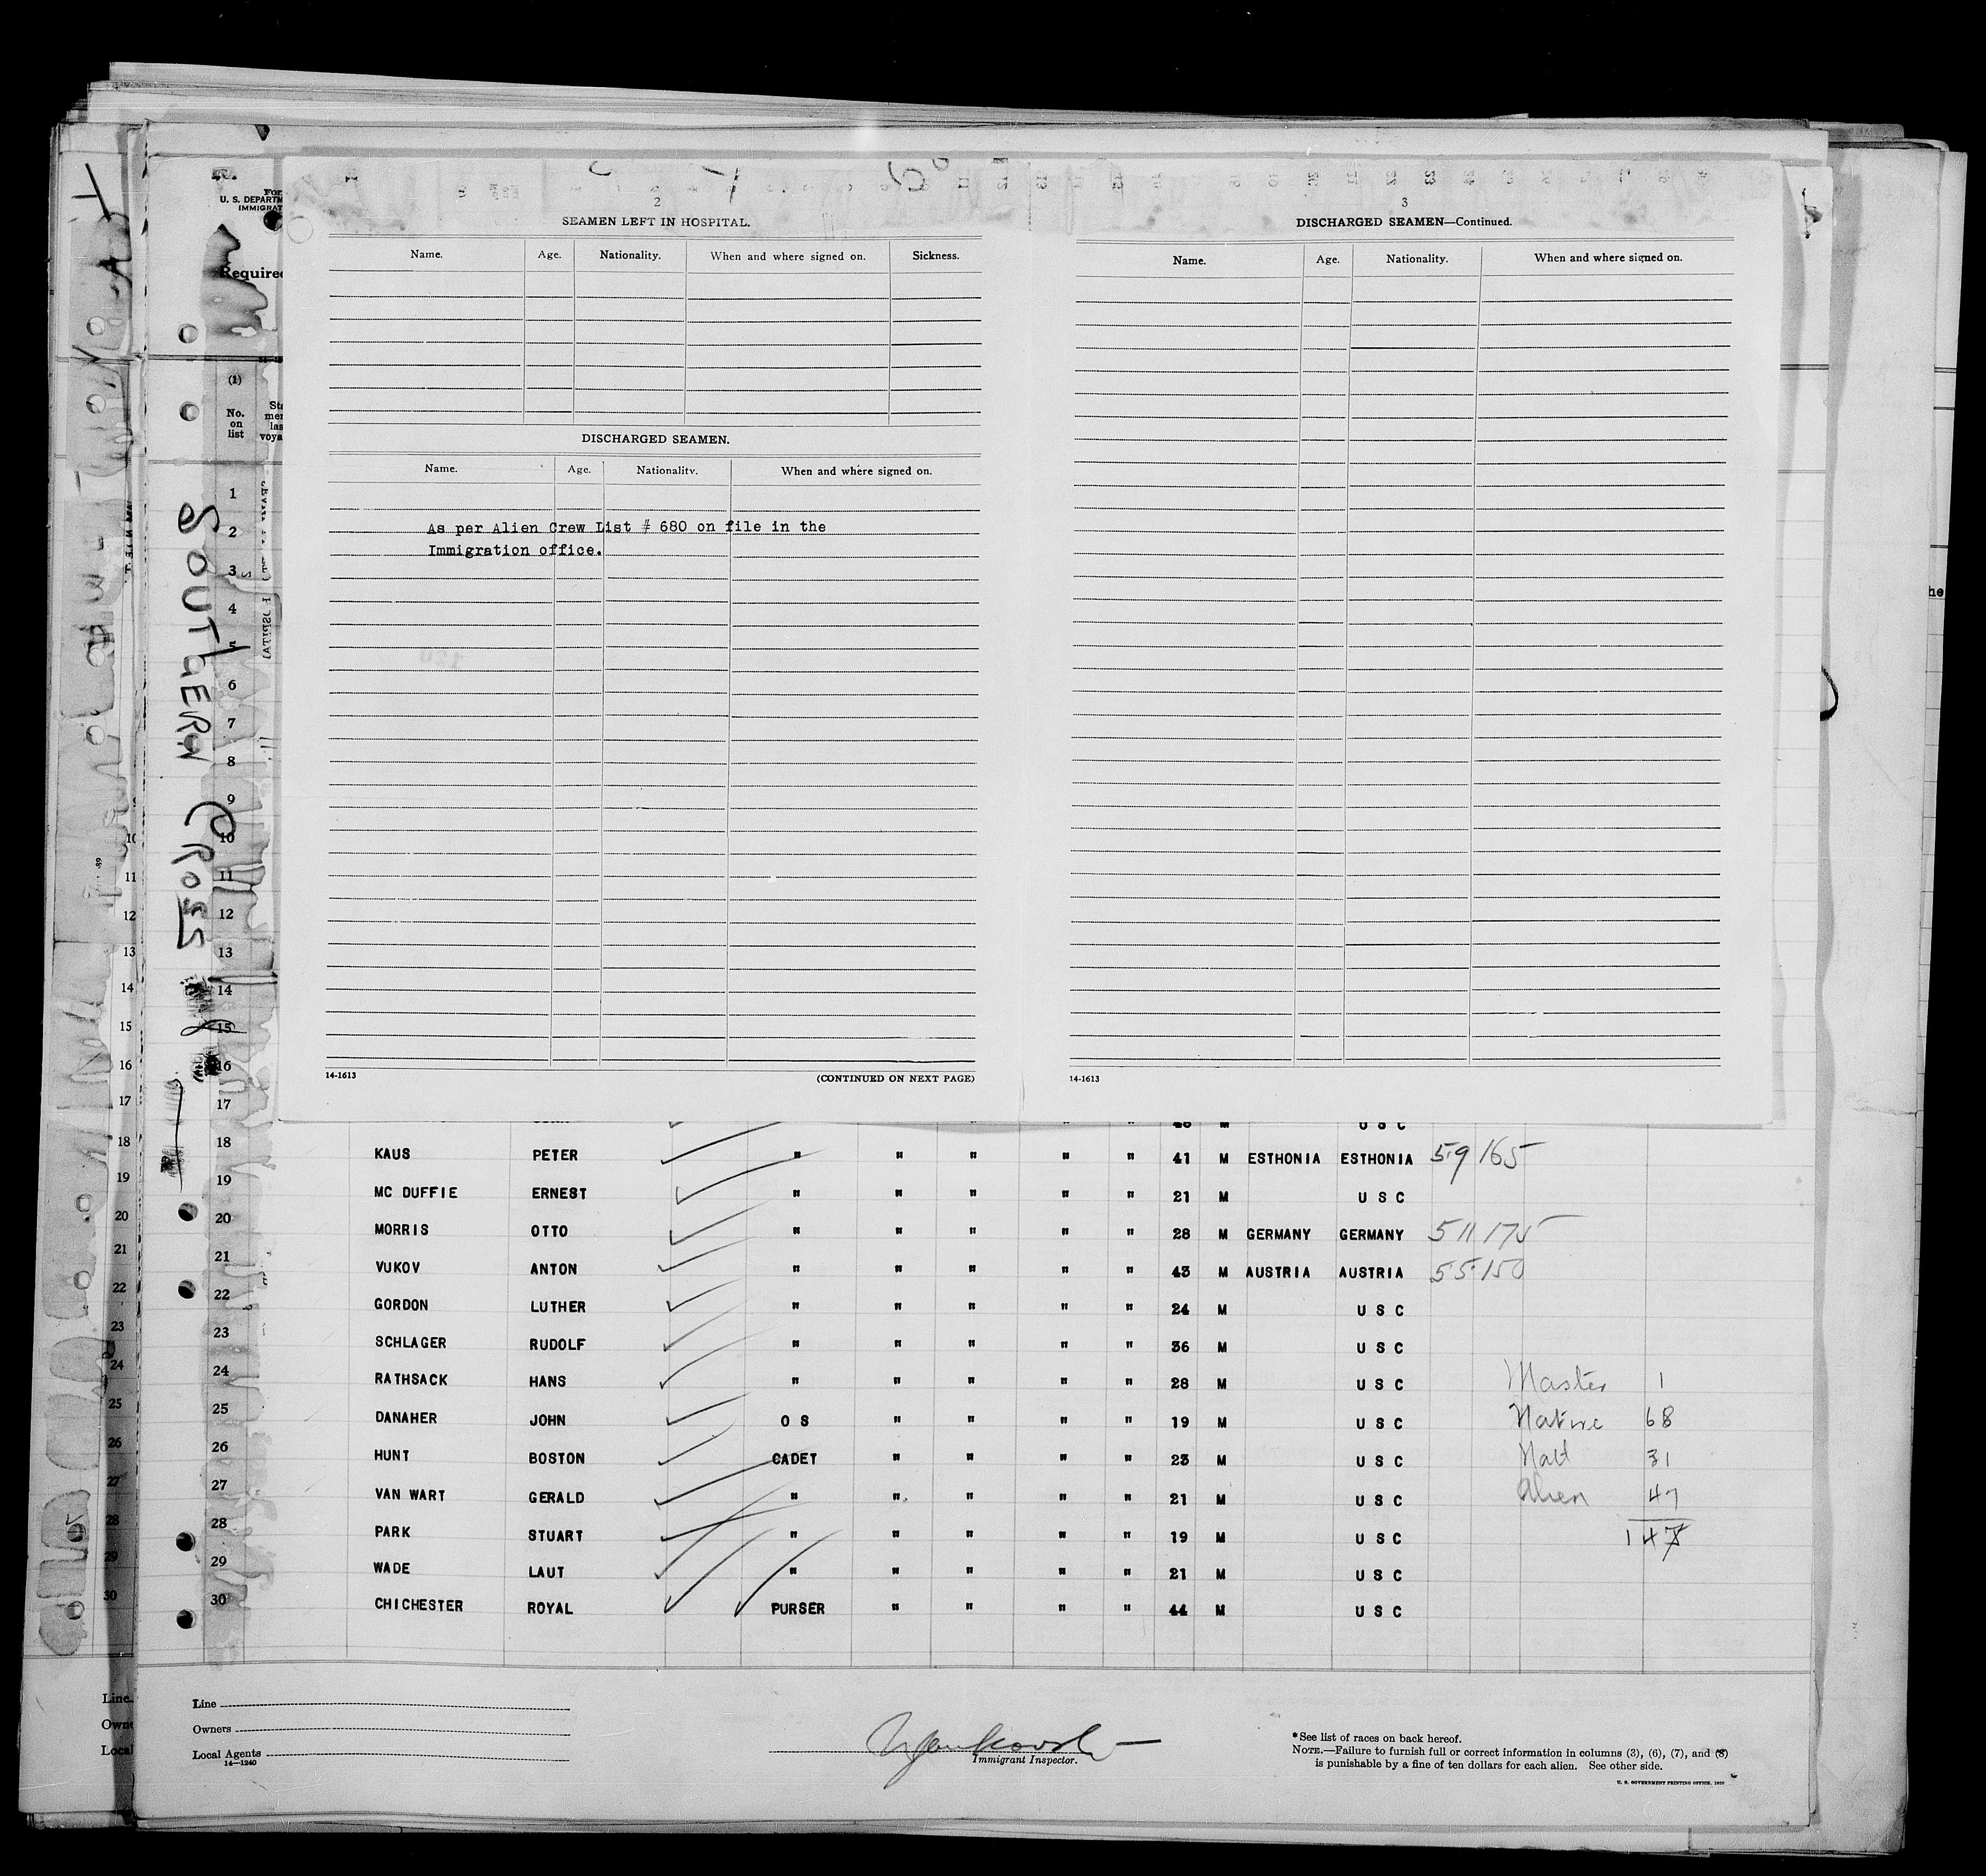 For
U. S. DEPARTM
IMMIGRAT
Required
(1)
No.
on
list
SOUTHERN CROSS
2
SEAMEN LEFT IN HOSPITAL.
Name. Age. Nationality. When and where signed on. Sickness.
DISCHARGED SEAMEN.
Name. Age. Nationality. When and where signed on.
As per Alien Crew List # 680 on file in the
Immigration office.
14-1613 (CONTINUED ON NEXT PAGE)
3
DISCHARGED SEAMEN—Continued.
Name. Age. Nationality. When and where signed on.
14-1613
1
2
3
4
5
6
7
8
9
10
11
12
13
14
15
16
17
18 KAUS PETER " " " " " 41 M ESTHONIA ESTHONIA 59 165
19 MC DUFFIE ERNEST " " " " " 21 M U S C
20 MORRIS OTTO " " " " " 28 M GERMANY GERMANY 511 175
21 VUKOV ANTON " " " " " 43 M AUSTRIA AUSTRIA 55 150
22 GORDON LUTHER " " " " " 24 M U S C
23 SCHLAGER RUDOLF " " " " " 36 M U S C
24 RATHSACK HANS " " " " " 28 M U S C Master 1
25 DANAHER JOHN O S " " " " 19 M U S C Native 68
26 HUNT BOSTON CADET " " " " 23 M U S C Natl 31
27 VAN WART GERALD " " " " " 21 M U S C Alien 47
28 PARK STUART " " " " " 19 M U S C 147
29 WADE LAUT " " " " " 21 M U S C
30 CHICHESTER ROYAL PURSER " " " " 44 M U S C
Line
Owners
Local Agents
14—1240
Immigrant Inspector.
*See list of races on back hereof.
NOTE.—Failure to furnish full or correct information in columns (3), (6), (7), and (8)
is punishable by a fine of ten dollars for each alien. See other side.
U. S. GOVERNMENT PRINTING OFFICE.